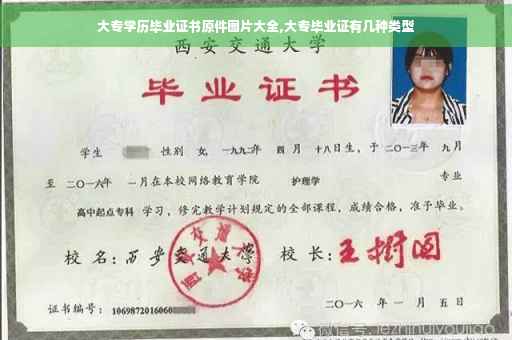 大专学历毕业证书原件图片大全,大专毕业证有几种类型
西安交通大学
毕业证书
学生 性别 女, 一九九二年 四月 十八日生, 于二〇一三年 九月
至 二〇一六年 一月在本校网络教育学院 护理学 专业
高中起点专科 学习, 修完教学计划规定的全部课程, 成绩合格, 准予毕业。
校名: 西安交通大学 校长: 王树国
西安交通大学
证书编号: 1069872016060
二〇一六年 一月 五日
微信号: jezhihuiyoujiao